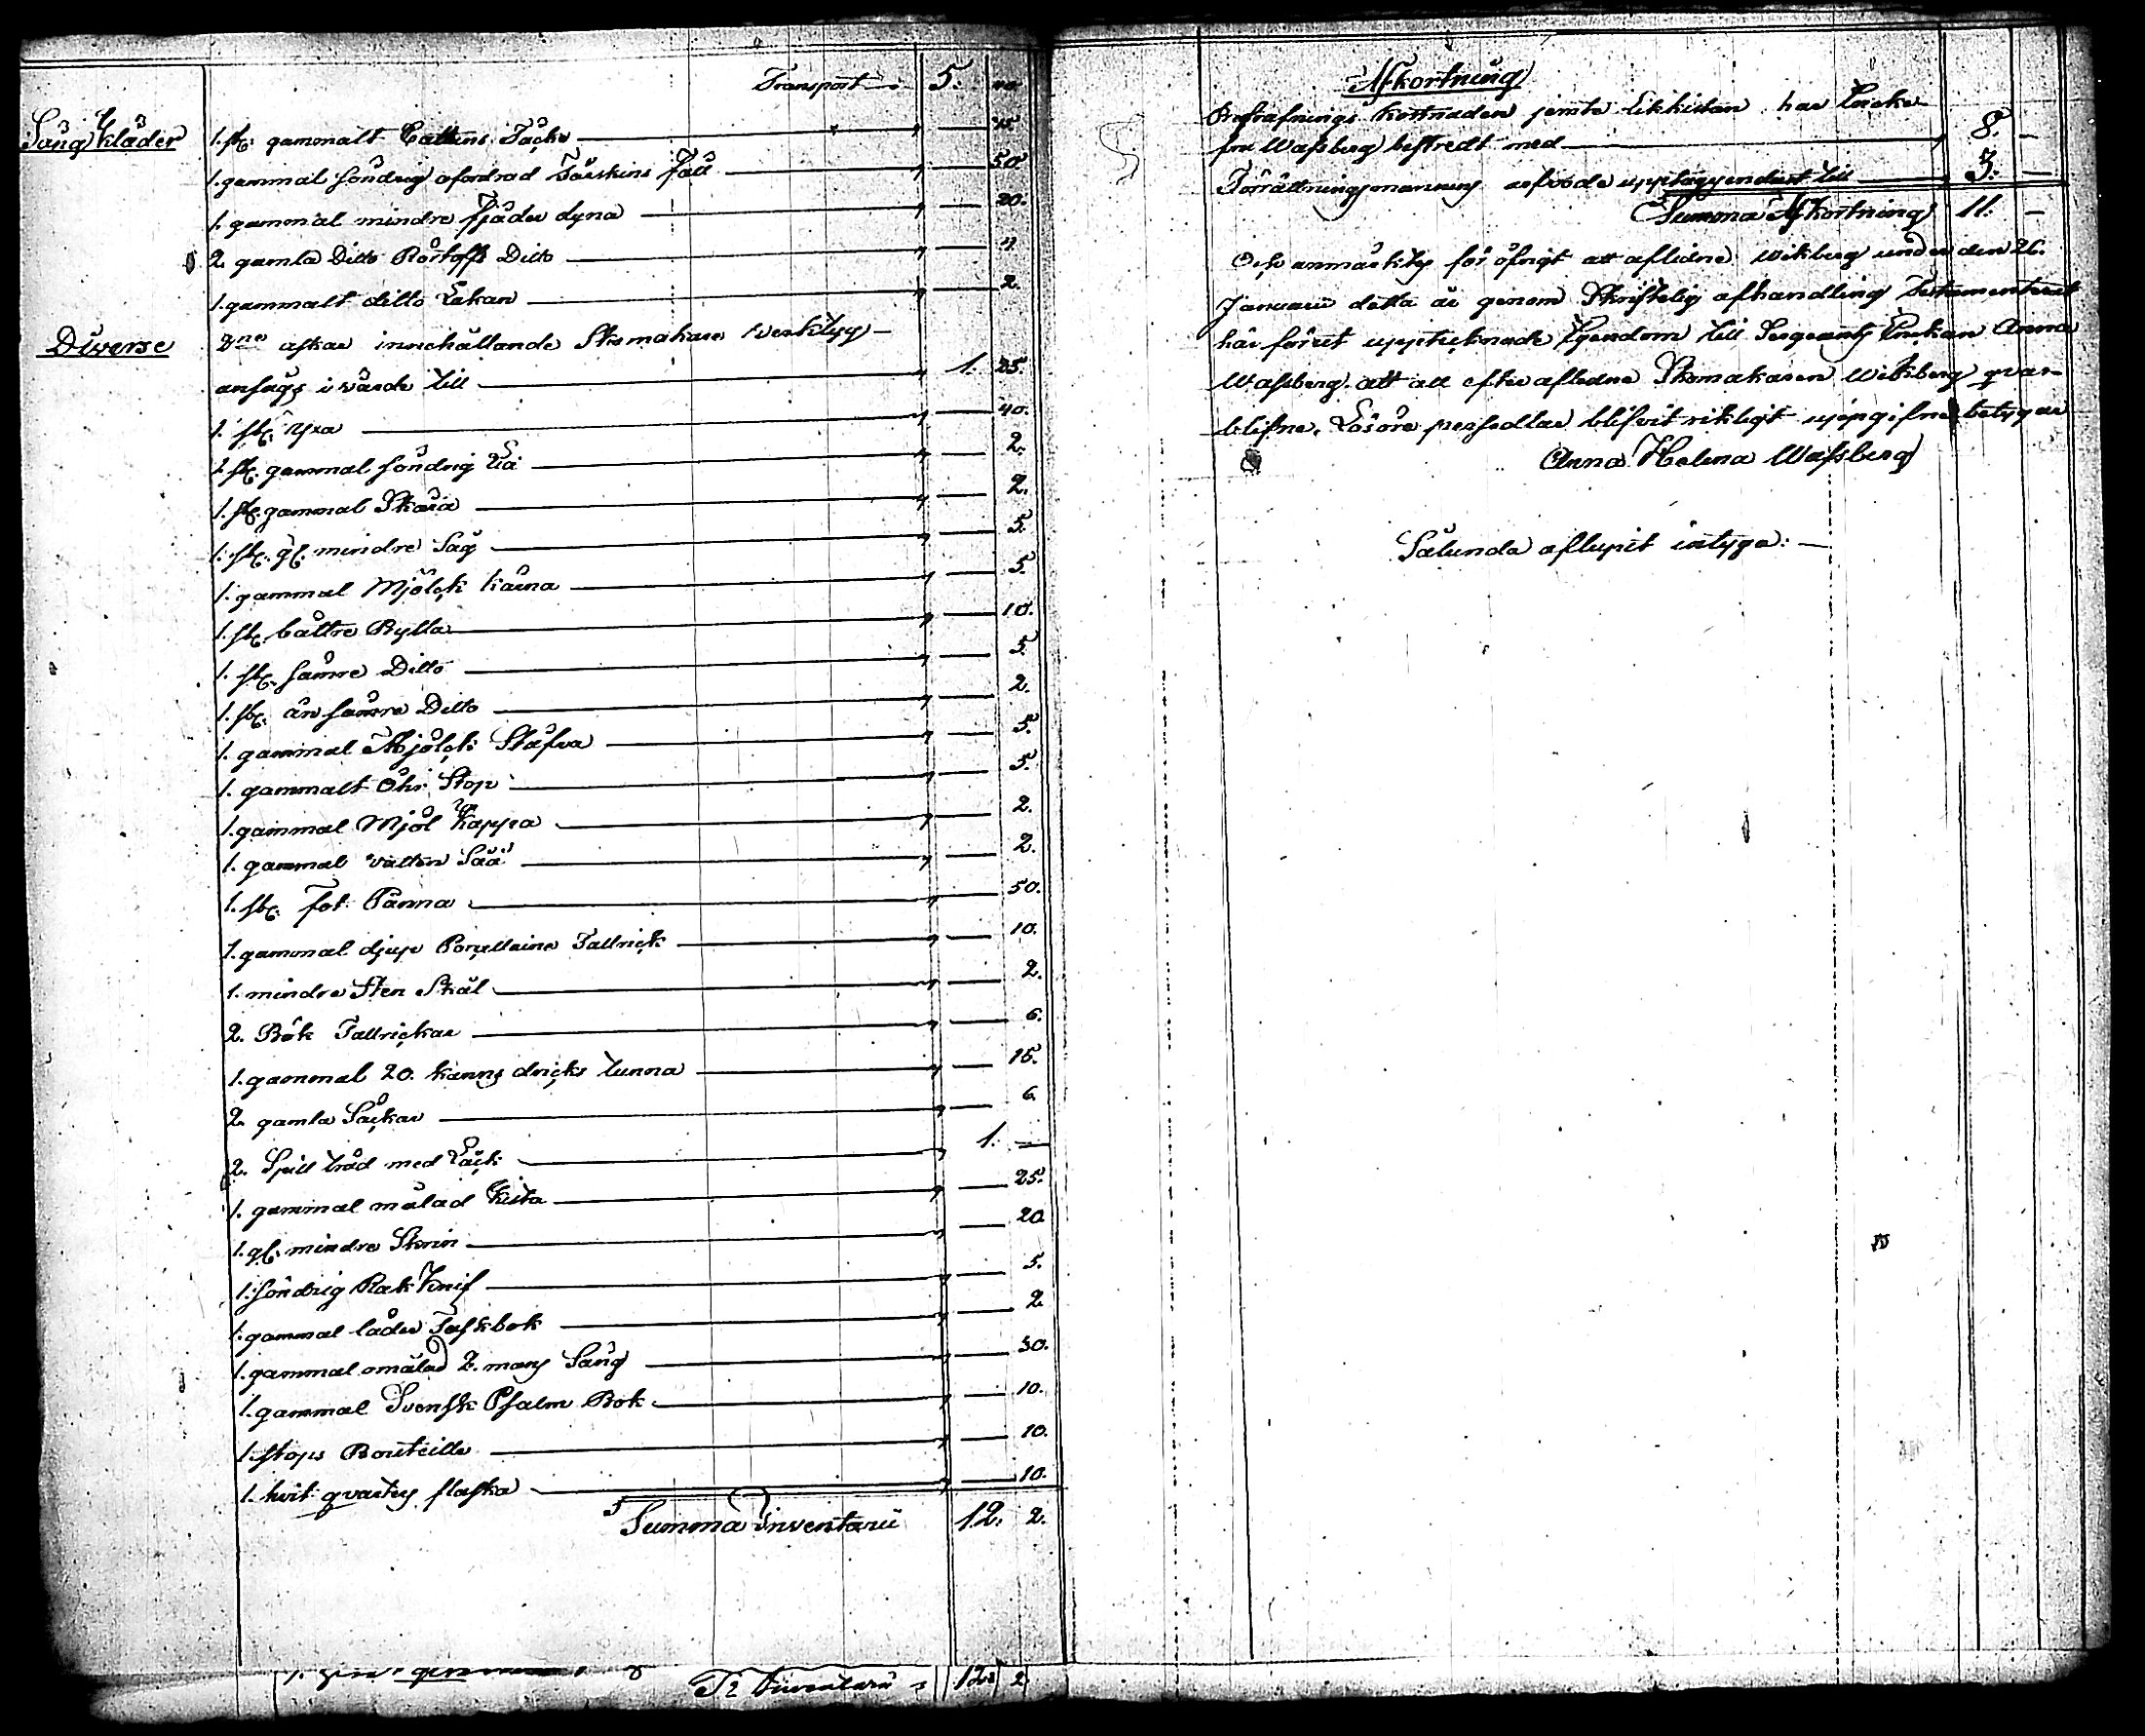 Transport 5.
Säng kläder 1. st. gammalt Cattuns Täcke 75
1. gammal söndrig ofordrad Fårskins Fäll 50
1. gammal mindre fjäder dyna 20.
2 gamla Ditto Ditto 4
1. gammalt ditto Lakan 2
Diverse askar innehållande Skomakare Verktyg
ansågs i värde till 1. 25.
1. st. Yxa 40.
1 st. gammal söndrig Lia 2.
1. st. gammal Skära 2.
1. st. gl. mindre Såg 5.
1. gammal Mjölck kärna 5.
1. st. bättre Bytta 10.
1. st. sämre Ditto 5.
1. st. än sämre Ditto 2.
1. gammal Mjölck Stäfva 5.
1. gammalt Öhr Stop 5.
1. gammal Mjöl Kappa 2.
1. gammal vatten Såå 2.
1. st. fot Panna 50.
1. gammal djup Porcellaine Tallrick 10.
1. mindre Sten Skål 2.
2. Bök Tallrickar 6.
1. gammal 20. kanns dricks tunna 15.
2. gamla Säckar 6.
2. Spill träd med Läck 1. —
1. gammal målad Kista 25.
1. gl. mindre Skrin 20
1. söndrig Rak Knif 5.
1. gammal läder Taskbok 2
1. gammal omålad 2. mans Säng 30.
1. gammal Svensk Psalm Bok 10.
1. stops Bouteille 10.
1. hvit qvarters flaska 10.
Summa Inventarii 12. 2.
Inventarii 12. 2
Afkortning
Begrafnings kostnaden jemte likkistan har Encke
fru Wassberg bestredt med 8. —
Förrättningsmannens arfvode upptages endast till 3. —
Summa Afkortning 11. —
Och anmärktes för öfrigt att aflidne Wikberg under den 26.
Januarii detta år genom Skriftelig afhandling Testamenterat
här förut upptecknade Egendom till Sergeants Enckan Anna
Wassberg. att all efter aflidne Skomakaren Wikberg qvar-
blifne Lösöre persedlar blifvit riktigt uppgifne betygar
Anna Helena Wassberg
Sålunda aflupit intyga:—